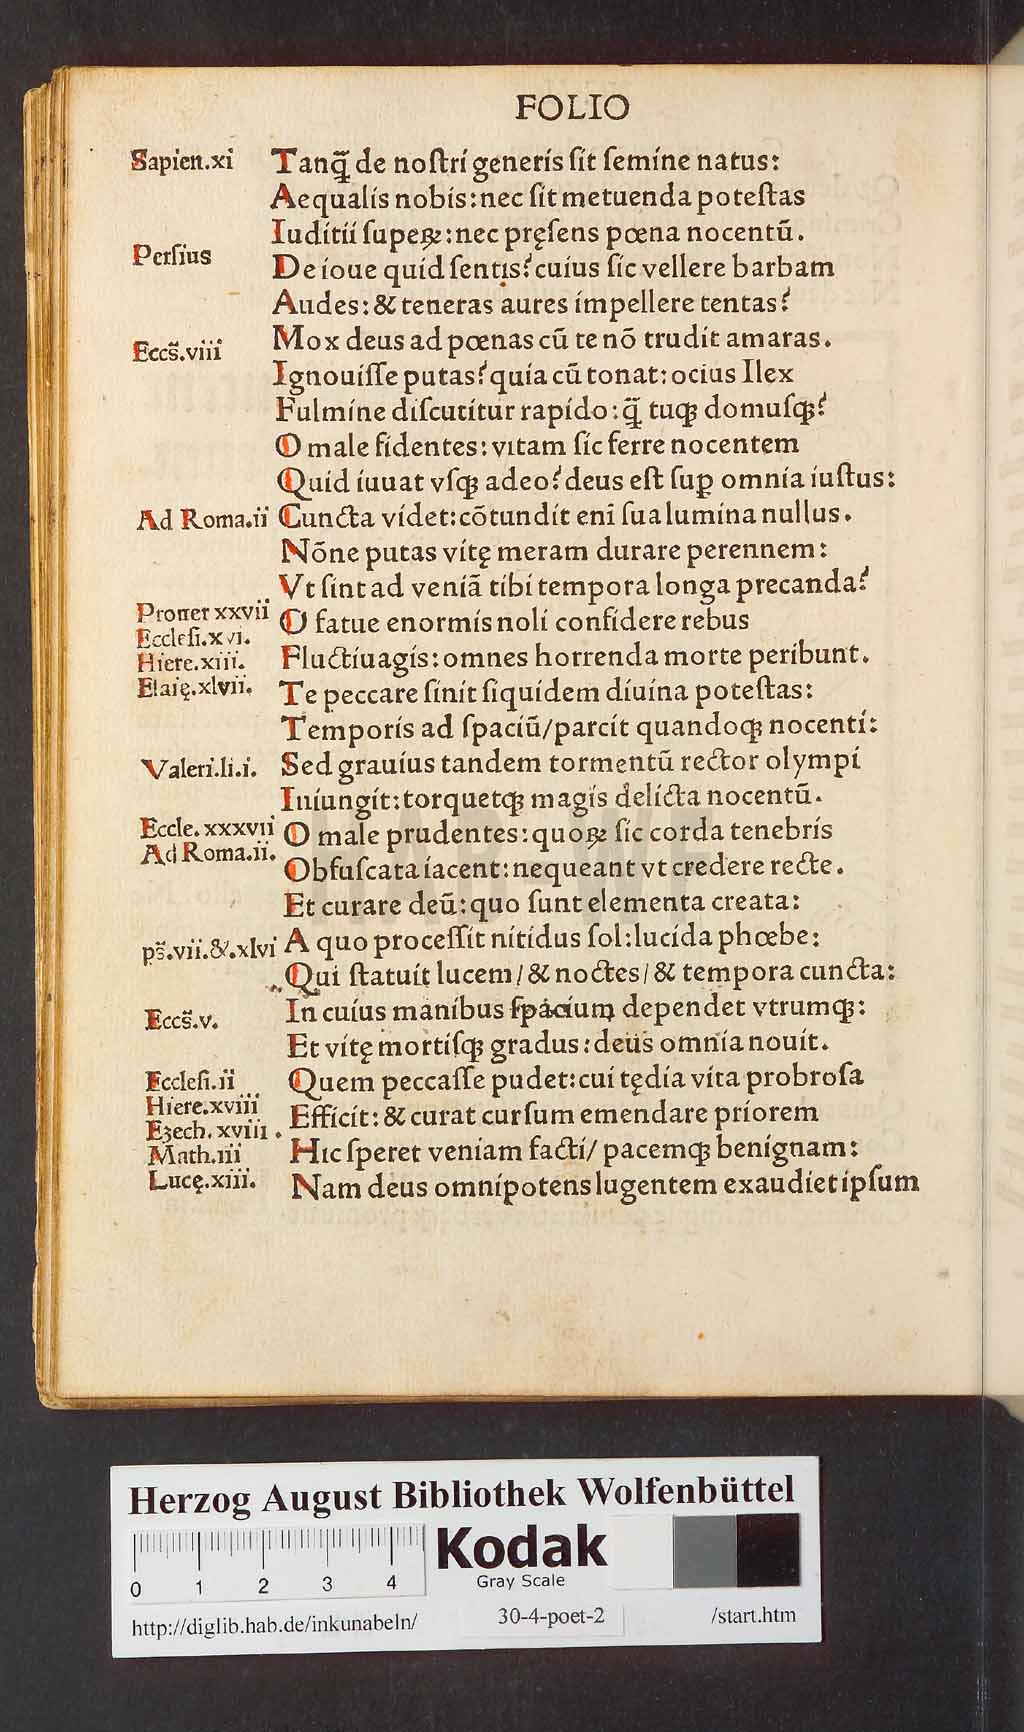 FOLIO
Sapien.xi
Tanq̃ de noſtri generis ſit ſemine natus:
Aequalis nobis:nec ſit metuenda poteſtas
Iuditii ſupeꝝ:nec pręſens pœna nocentũ.
Perſius
De ioue quid ſentis?cuius ſic vellere barbam
Audes:& teneras aures impellere tentas?
Eccs̃.viii
Mox deus ad pœnas cũ te nõ trudit amaras.
Ignouiſſe putas?quia cũ tonat:ocius Ilex
Fulmine diſcutitur rapido:q̃ tuqꝫ domuſqꝫ?
O male fidentes:vitam ſic ferre nocentem
Quid iuuat vſqꝫ adeo?deus eſt ſuꝑ omnia iuſtus:
Ad Roma.ii
Cuncta videt:cõtundit eni ſua lumina nullus.
Nõne putas vitę meram durare perennem:
Vt ſint ad veniã tibi tempora longa precanda?
Prouer xxvii
Eccleſi.xvi.
Hiere.xiii.
Eſaię.xlvii.
O fatue enormis noli confidere rebus
Fluctiuagis:omnes horrenda morte peribunt.
Te peccare ſinit ſiquidem diuina poteſtas:
Temporis ad ſpaciũ/parcit quandoqꝫ nocenti:
Valeri.li.i.
Sed grauius tandem tormentũ rector olympi
Iniungit:torquetqꝫ magis delicta nocentũ.
Eccle.xxxvii
Ad Roma.ii.
O male prudentes:quoꝝ ſic corda tenebris
Obfuſcata iacent:nequeant vt credere recte.
Et curare deũ:quo ſunt elementa creata:
ps̃.vii.&.xlvi
A quo proceſſit nitidus ſol:lucida phœbe:
Qui ſtatuit lucem/& noctes/& tempora cuncta:
Eccs̃.v.
In cuius manibus ſpacium dependet vtrumqꝫ:
Et vitę mortiſqꝫ gradus:deus omnia nouit.
Eccleſi.ii
Hiere.xviii
Ezech.xviii.
Math.iii
Lucę.xiii.
Quem peccaſſe pudet:cui tędia vita probroſa
Efficit:& curat curſum emendare priorem
Hic ſperet veniam facti/ pacemqꝫ benignam:
Nam deus omnipotens lugentem exaudiet ipſum
HAB-WF
Herzog August Bibliothek Wolfenbüttel
0 1 2 3 4
Kodak
Gray Scale
http://diglib.hab.de/inkunabeln/ 30-4-poet-2 /start.htm